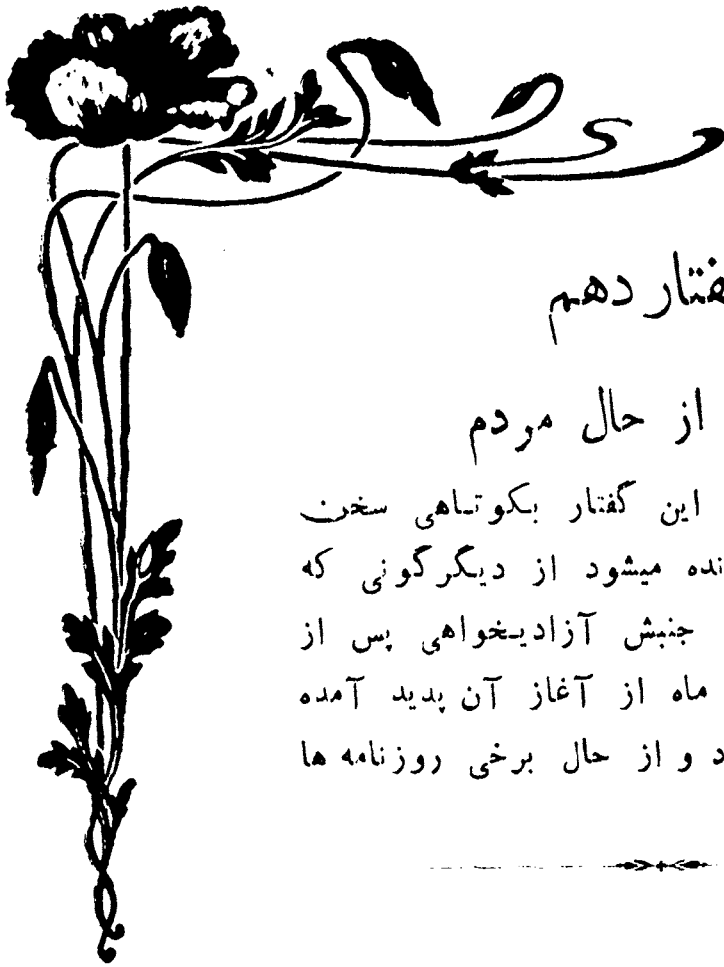 فتار دهم
از حال مردم
این گفتار بکوتاهی سخن
نده میشود از دیگرگونی که
جنبش آزادیخواهی پس از
ماه از آغاز آن پدید آمده
د و از حال برخی روزنامه ها